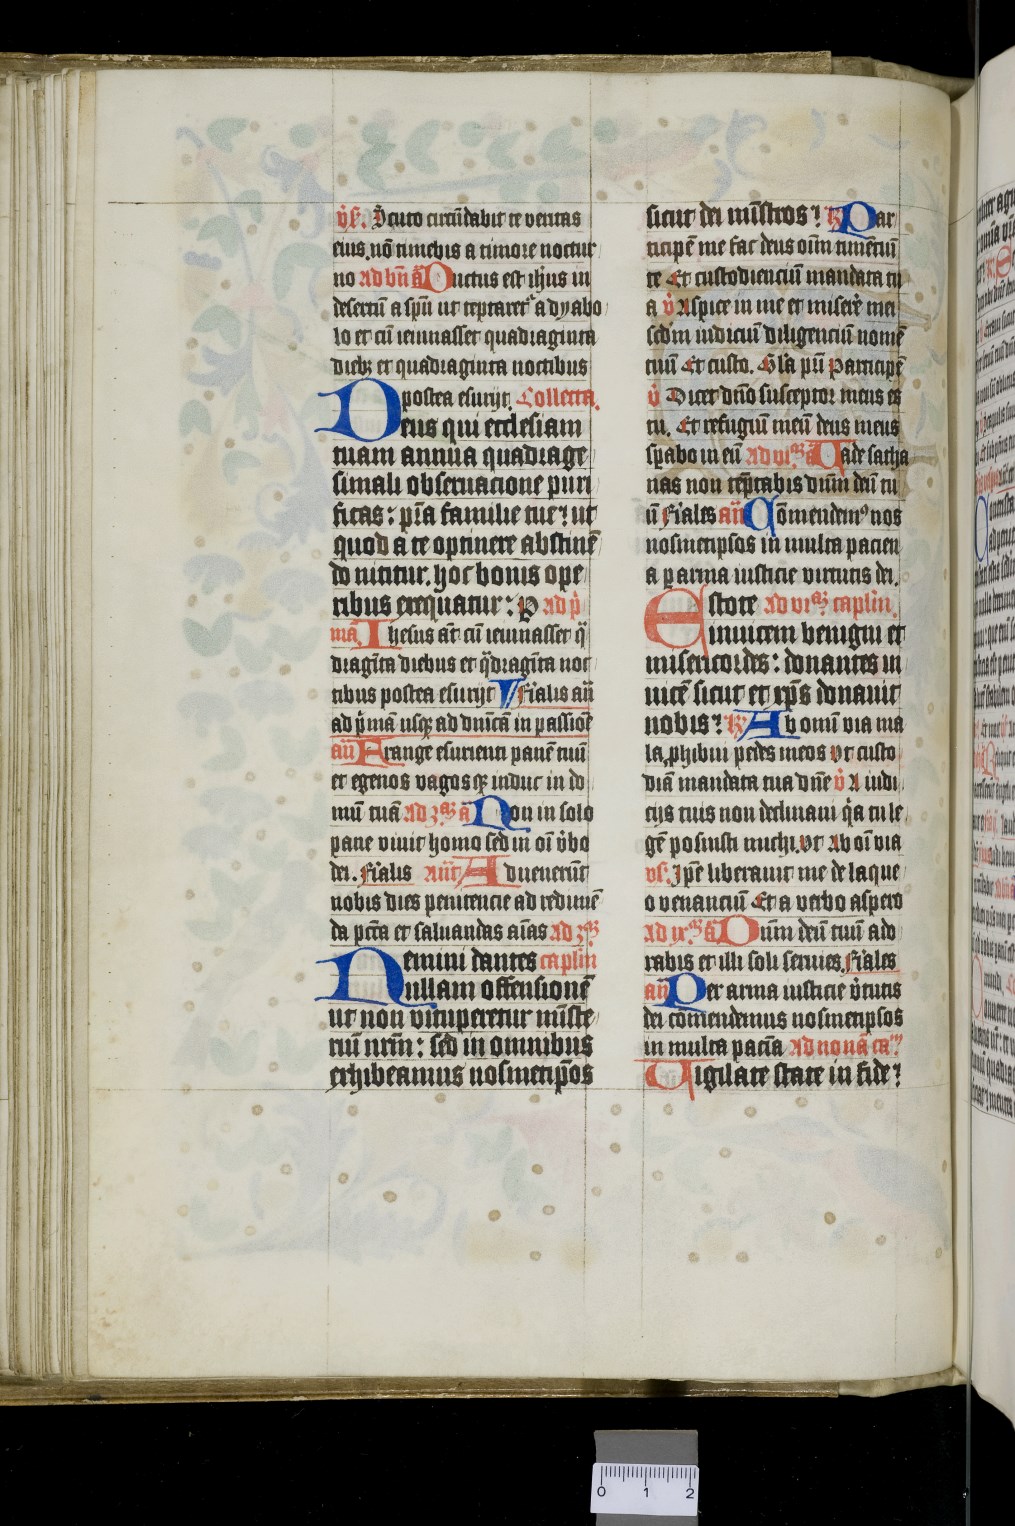 v̇s̄. Scuto circūdabit te veritas
eius. nō timebis a timore noctur
no ad bn̄ a᷒ Ductus est ihūs in
desertū a spū ut teptaret᷒ a dyabo
lo et cū ieiunasset quadraginta
dieb᷒ et quadraginta noctibus
postea esurijt. Collecta.
Deus qui ecclesiam
tuam annua quadrage
simali obseruacione puri
ficas: pr̄a familie tue ut
quod a te optinere abstinē
do nititur. hoc bonis ope
ribus exequatur: P ad p̄
mā. Ihesus at̄ cū ieiunasset q̄
dragīta diebus et q̄dragīta noc
tibus postea esurijt V Fīalis an̄
ad p̄mā usq᷒ ad dnīcā in passiōe
an̄ Frange esurienti panē tuū
et egenos vagosq᷒ induc in do
mū tuā Ad 3ᵃ᷒ a᷒ Non in solo
pane viuit homo sed in oī v̄bo
dei. Fīalis An̄t Aduenerūt
nobis dies penitencie ad redimē
da pctā et saluandas aīas ad 3ᵃ᷒
Nemini dantes caplm̄
ullam offensionē
ut non vituperetur mīste
riū nrm̄: sed in omnibus
exhibeamus nosmetip̄os
sicut dei mīstros R̄ Par
ticipē me fac deus oīm timētiū
te Et custodienciū mandata tu
a v̇ Aspice in me et miserē mei
scdm̄ iudiciū diligenciū nomē
tuū Et custo. Glīa pī Participē
v̇ Dicet dn̄o susceptor meus es
tu. Et refugiū meū deus meus
sp̄abo in eū Ad vi.ᵃ᷒ a᷒ Uade satha
nas non teptabis dnm̄ deū tu
ū Fīales an̄ Cōmendem᷒ nos
nosmetipsos in multa pacien
a p arma iusticie virtutis dei.
Estote Ad viᵃ᷒ caplm̄.
inuicem benigni et
misericordes: donantes in
uicē sicut et xp̄s donauit
nobis R̄ Ab omni via ma
la phibui pedes meos vt custo
diā mandata tua dn̄e v̇ A iudi
cijs tuis non declinaui q̄a tu le
gē posuisti michi. vt Ab oī via
vs̄. Ip̄e liberauit me de laque
o venanciū Et a verbo aspero
Ad ix.ᵃ᷒ a᷒ Dūm deū tuū ado
rabis et illi soli seruies. Fīales
an̄ Per arma iusticie v̄tutis
dei cōmendemus nosmetipsos
in multa paciā Ad nonā ca᷒
Uigilate state in fide